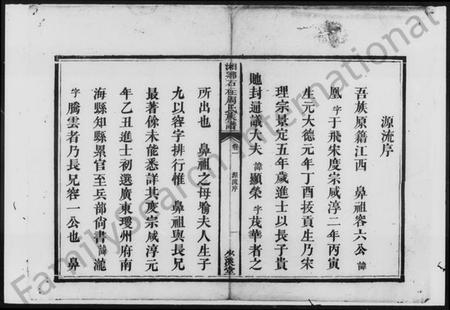 源流序
吾族原籍江西 鼻祖容六公 諱
鳳 字于飛宋度宗咸淳二年丙寅
生元大德元年丁酉拔貢生乃宋
理宗景定五年歲進士以長子貴
貤封通議大夫 諱顯榮 字茂華者之
湘鄉石柱周氏族譜 卷一 源流序
所出也 鼻祖之母喻夫人生子
九以容字排行惟 鼻祖與長兄
最著餘未能悉詳其度宗咸淳元
年乙丑進士初選廣東瓊州府南
海縣知縣累官至兵部尚書 諱瀧
字騰雲者乃長兄容一公也 鼻
FamilySearch International